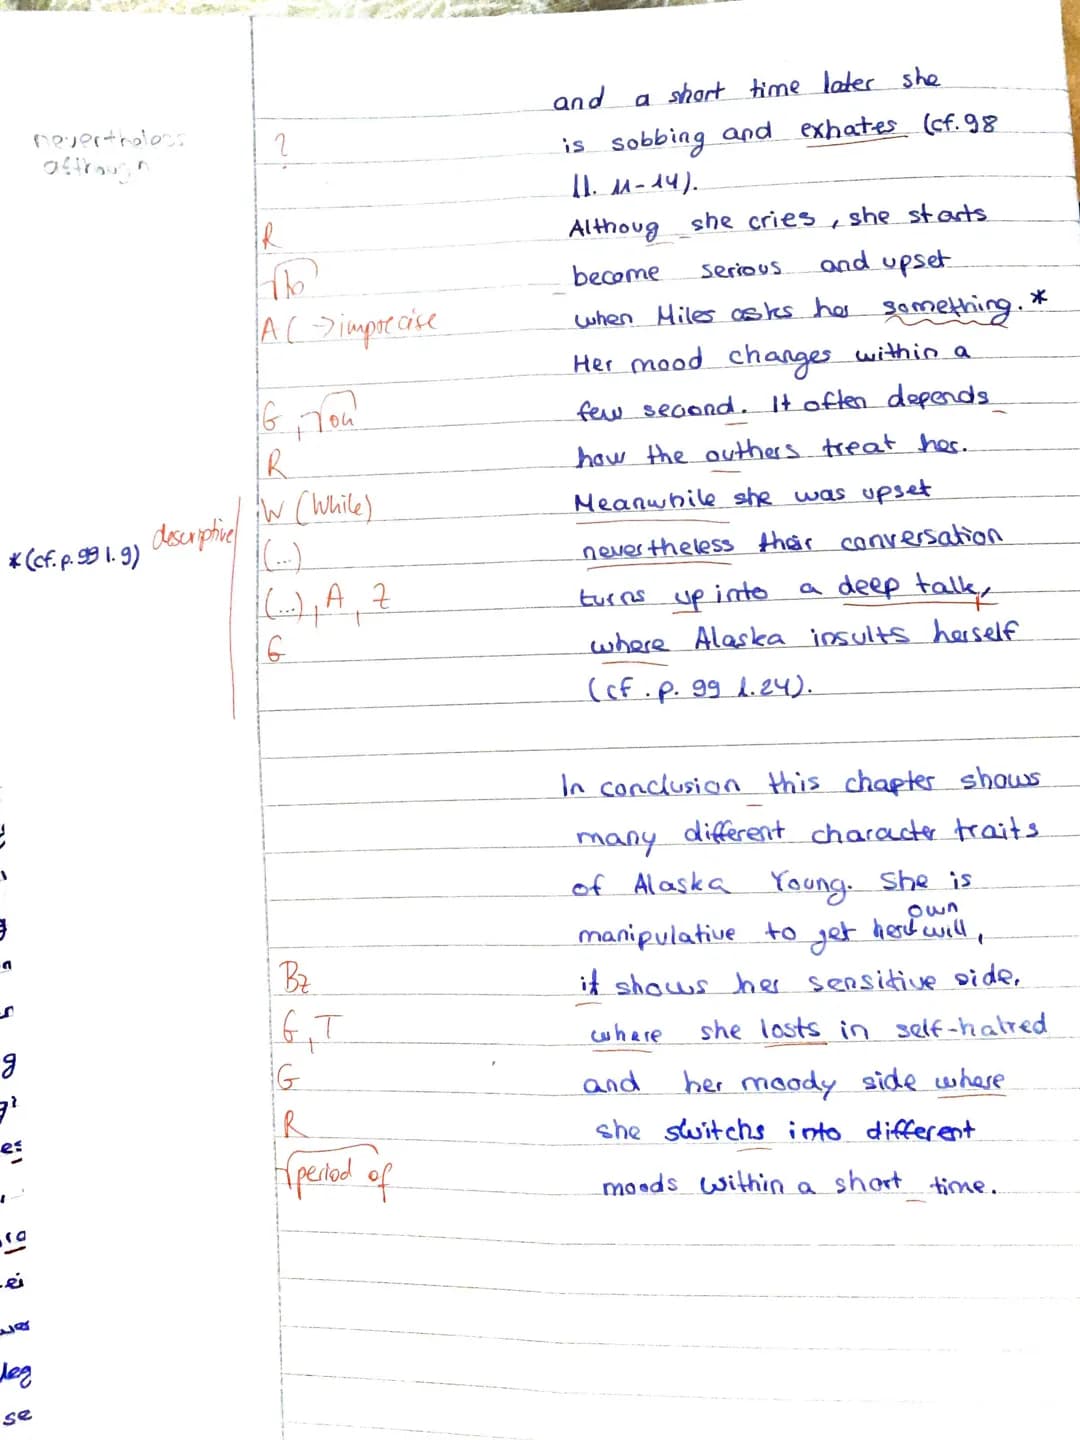 and a short time later she
nevertheless
although
?
is sobbing and exhates (cf. 98
ll. 11-14).
R
Althoug she cries, she starts
to
become serious and upset
A (->imprecise
when Miles asks her something.*
Her mood changes within a
G, on
few second. It often depends
R
how the outhers treat her.
W (While)
Meanwhile she was upset
*(cf. p. 99 l. 9)
descriptive
(...)
nevertheless their conversation
(...), A, Z
turns up into a deep talk,
G
where Alaska insults herself
(cf. p. 99 l. 24).
In conclusion this chapter shows
many different character traits
of Alaska Young. She is
own
manipulative to get her will,
Bz
it shows her sensitive side,
G, T
where she losts in self-hatred
G
and her moody side where
R
she switchs into different
period of
moods within a short time.
g
es
ei
wer
leg
se